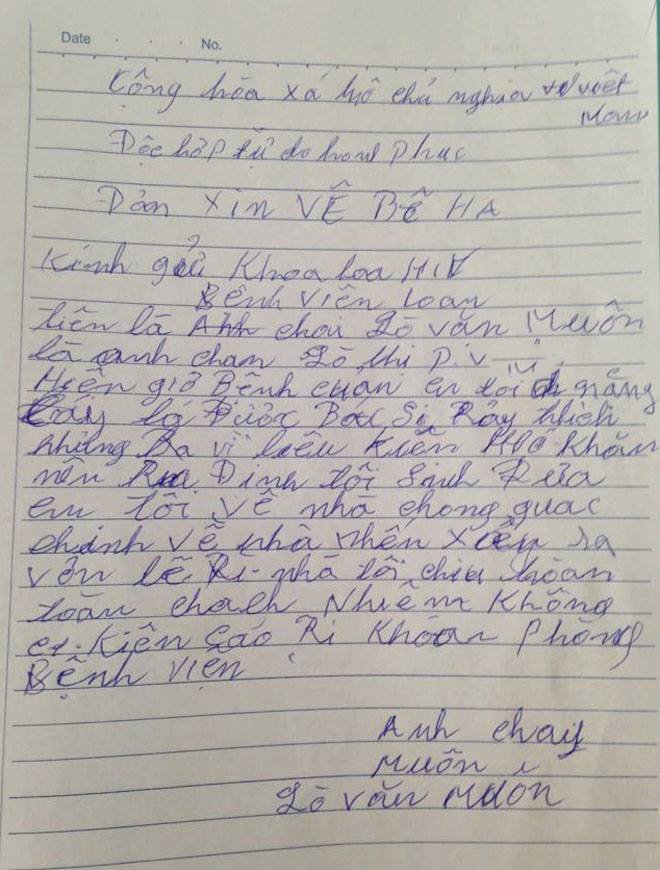 Date . . . No.
Cộng hòa xá hộ chủ nghia việt
Mam
Đôc hâp tử do hanh Phuc
Đản xin VỄ BÊ HA
Kính gửi Khoa loa HIV
Bênh viên loan
liên lá Anh chai Lò văn Muôn
lá anh chan Lò thi P. V
Hiên giờ Bênh cuan en tôi năng
lá Được Bac Si Rảy thich
nhưng Ba vì liêu Kiên Hoc Khăn
nên Ra Đinh tôi Sinh Đưa
em tôi vê nhà chong guac
chinh vê nhà nhên Xảy ra
vớn lê Ri nhà tôi chiu hoan
toan chach Nhiêm Không
Kiên Cáo Ri Khoar Phòng
Bệnh viên
Anh chay
Muôn
Lò văn Muôn